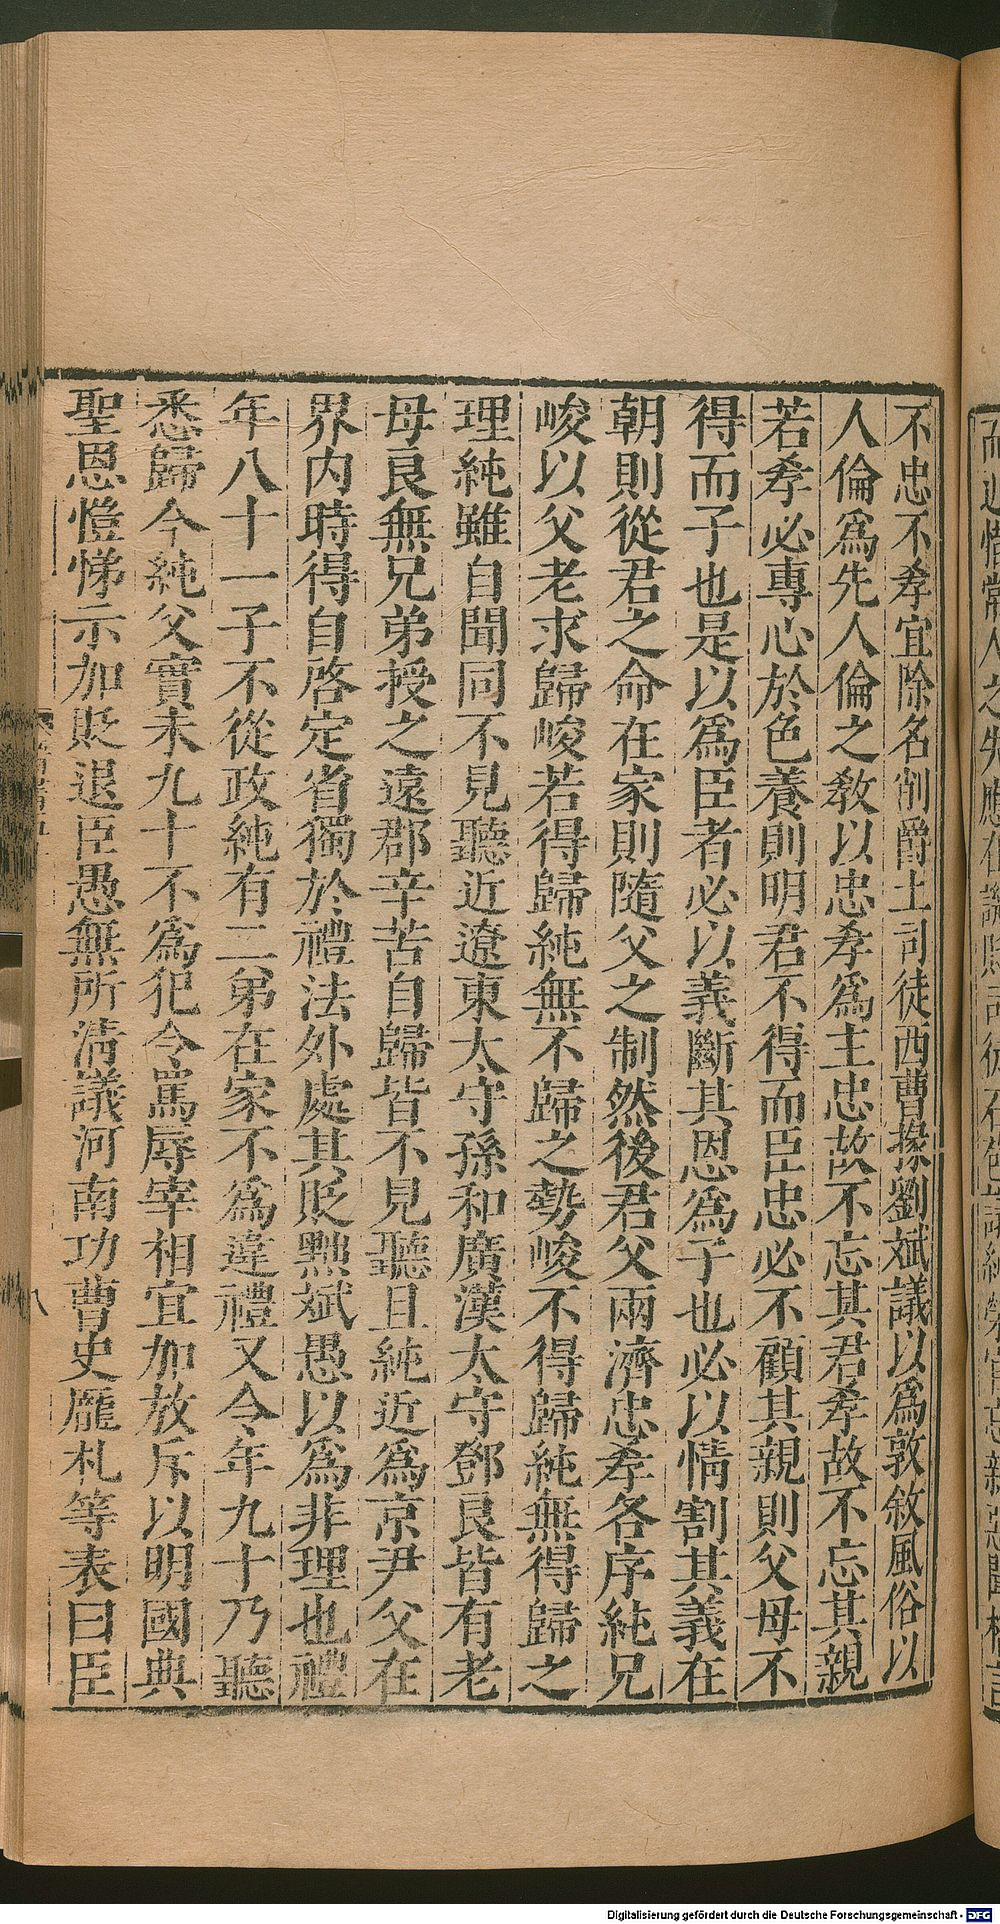 不忠不孝宜除名削爵土司徒西曹掾劉斌議以爲敦敘風俗以
人倫爲先人倫之敎以忠孝爲主忠故不忘其君孝故不忘其親
若孝必專心於色養則明君不得而臣忠必不顧其親則父母不
得而子也是以爲臣者必以義斷其恩爲子也必以情割其義在
朝則從君之命在家則隨父之制然後君父兩濟忠孝各序純兄
峻以父老求歸峻若得歸純無不歸之勢峻不得歸純無得歸之
理純雖自聞同不見聽近遼東太守孫和廣漢太守鄧良皆有老
母良無兄弟授之遠郡辛苦自歸皆不見聽且純近爲京尹父在
界內時得自啓定省獨於禮法外處其貶黜斌愚以爲非理也禮
年八十一子不從政純有二弟在家不爲違禮又令年九十乃聽
悉歸今純父實未九十不爲犯令罵辱宰相宜加放斥以明國典
聖恩愷悌示加貶退臣愚無所淸議河南功曹史龐札等表曰臣
八
Digitalisierung gefördert durch die Deutsche Forschungsgemeinschaft - DFG